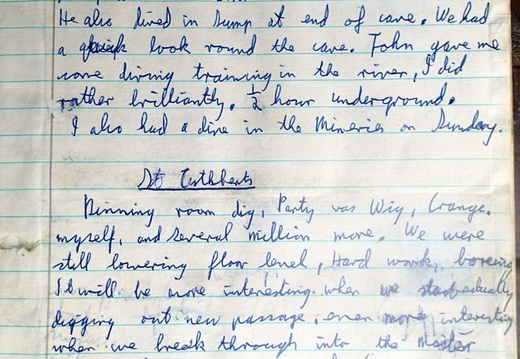 He also dived in Sump at end of cave. We had
a quick look round the cave. John gave me
some diving training in the river, I did
rather brilliantly. ½ hour underground.
I also had a dive in the Mineries on Sunday.
St Cuthberts
Dinning room dig, Party was Wig, Orange,
myself, and several million more. We were
still lowering floor level, Hard work, boreing
It will be more interesting when we start actually
digging out new passage, even more interesting
when we break through into the Master